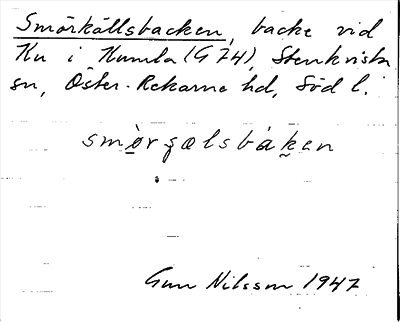 Smörkällsbacken, backe vid
Ku i Kumla (G 74), Stenkvista
sn, Öster-Rekarne hd, Söd l.
smörȿælsbàḵen
Gun Nilsson 1947